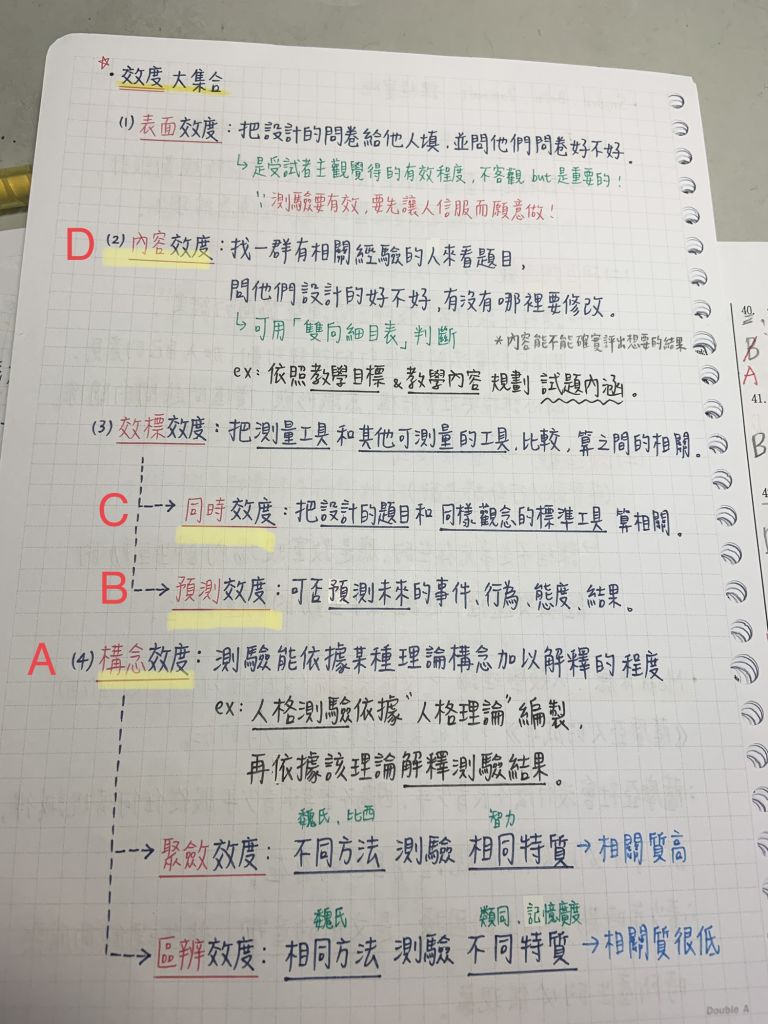 ☆
· 效度 大集合
(1) 表面效度：把設計的問卷給他人填，並問他們問卷好不好。
↳ 是受試者主觀覺得的有效程度，不客觀 but 是重要的！
∵ 測驗要有效，要先讓人信服而願意做！
D (2) 內容效度：找一群有相關經驗的人來看題目，
問他們設計的好不好，有沒有哪裡要修改。
↳ 可用「雙向細目表」判斷 *內容能不能確實評出想要的結果
ex：依照教學目標 & 教學內容 規劃 試題內涵。
(3) 效標效度：把測量工具和其他可測量的工具，比較，算之間的相關。
C 同時效度：把設計的題目和同樣觀念的標準工具 算相關。
B 預測效度：可否預測未來的事件、行為、態度、結果。
A (4) 構念效度：測驗能依據某種理論構念加以解釋的程度
ex：人格測驗依據"人格理論"編製，
再依據該理論解釋測驗結果。
魏氏，比西 智力
聚斂效度：不同方法 測驗 相同特質 → 相關質高
魏氏 類同、記憶廣度
區辨效度：相同方法 測驗 不同特質 → 相關質很低
Double A
40.
B
A
41.
B